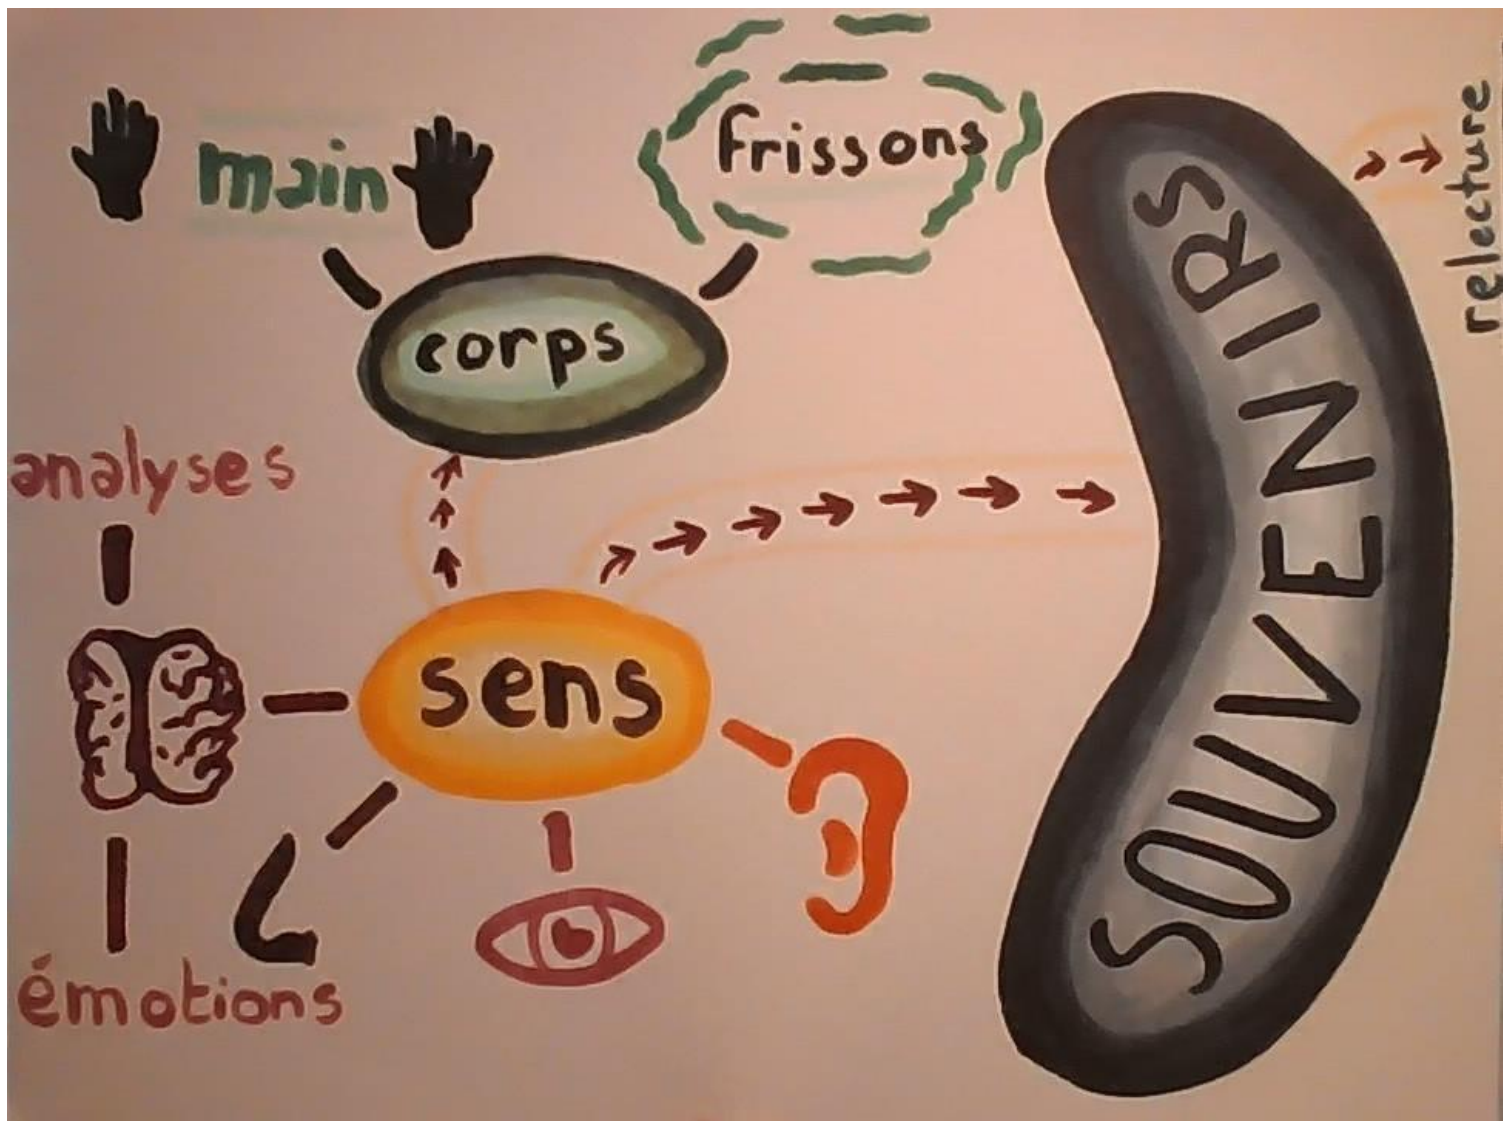 main
frissons
corps
analyses
sens
émotions
SOUVENIRS
relecture